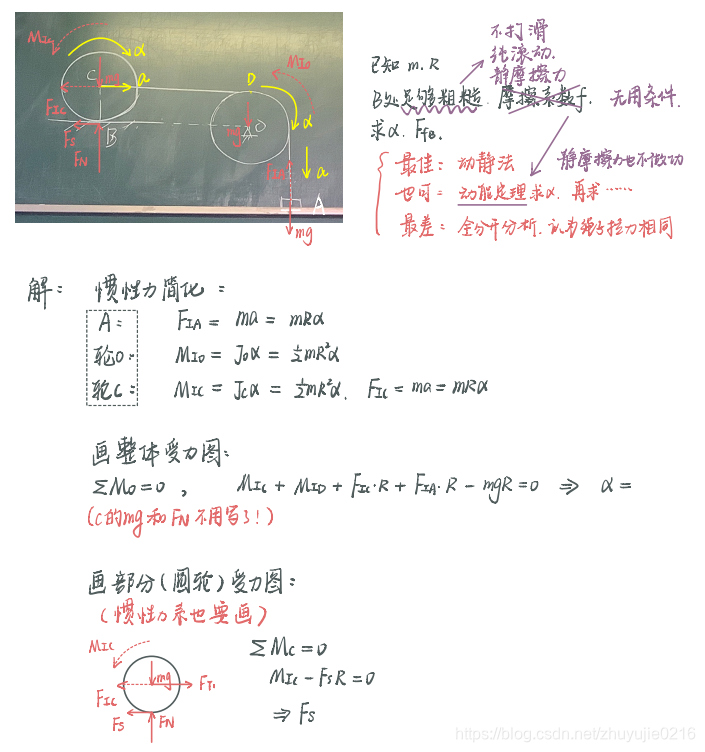 M_IC α
C mg a
F_IC
F_S B
F_N
D M_IO
α
mg O
a
F_IA
A
mg
不打滑
纯滚动.
静摩擦力
已知 m.R
B处足够粗糙. 摩擦系数f. 无用条件.
求α. F_fB.
最佳: 动静法 静摩擦力也不做功
也可: 动能定理求α. 再求……
最差: 全分开分析. 认为绳子拉力相同
解: 惯性力简化:
A: F_IA = ma = mRα
轮O: M_IO = J_Oα = ½mR²α
轮C: M_IC = J_Cα = ½mR²α. F_IC = ma = mRα
画整体受力图:
ΣM_O=0, M_IC + M_IO + F_IC·R + F_IA·R - mgR=0 ⇒ α =
(C的mg和F_N不用写了!)
画部分(圆轮)受力图:
(惯性力系也要画)
M_IC
mg
F_IC F_T
F_S F_N
ΣM_C=0
M_IC - F_S R=0
⇒ F_S
https://blog.csdn.net/zhuyujie0216